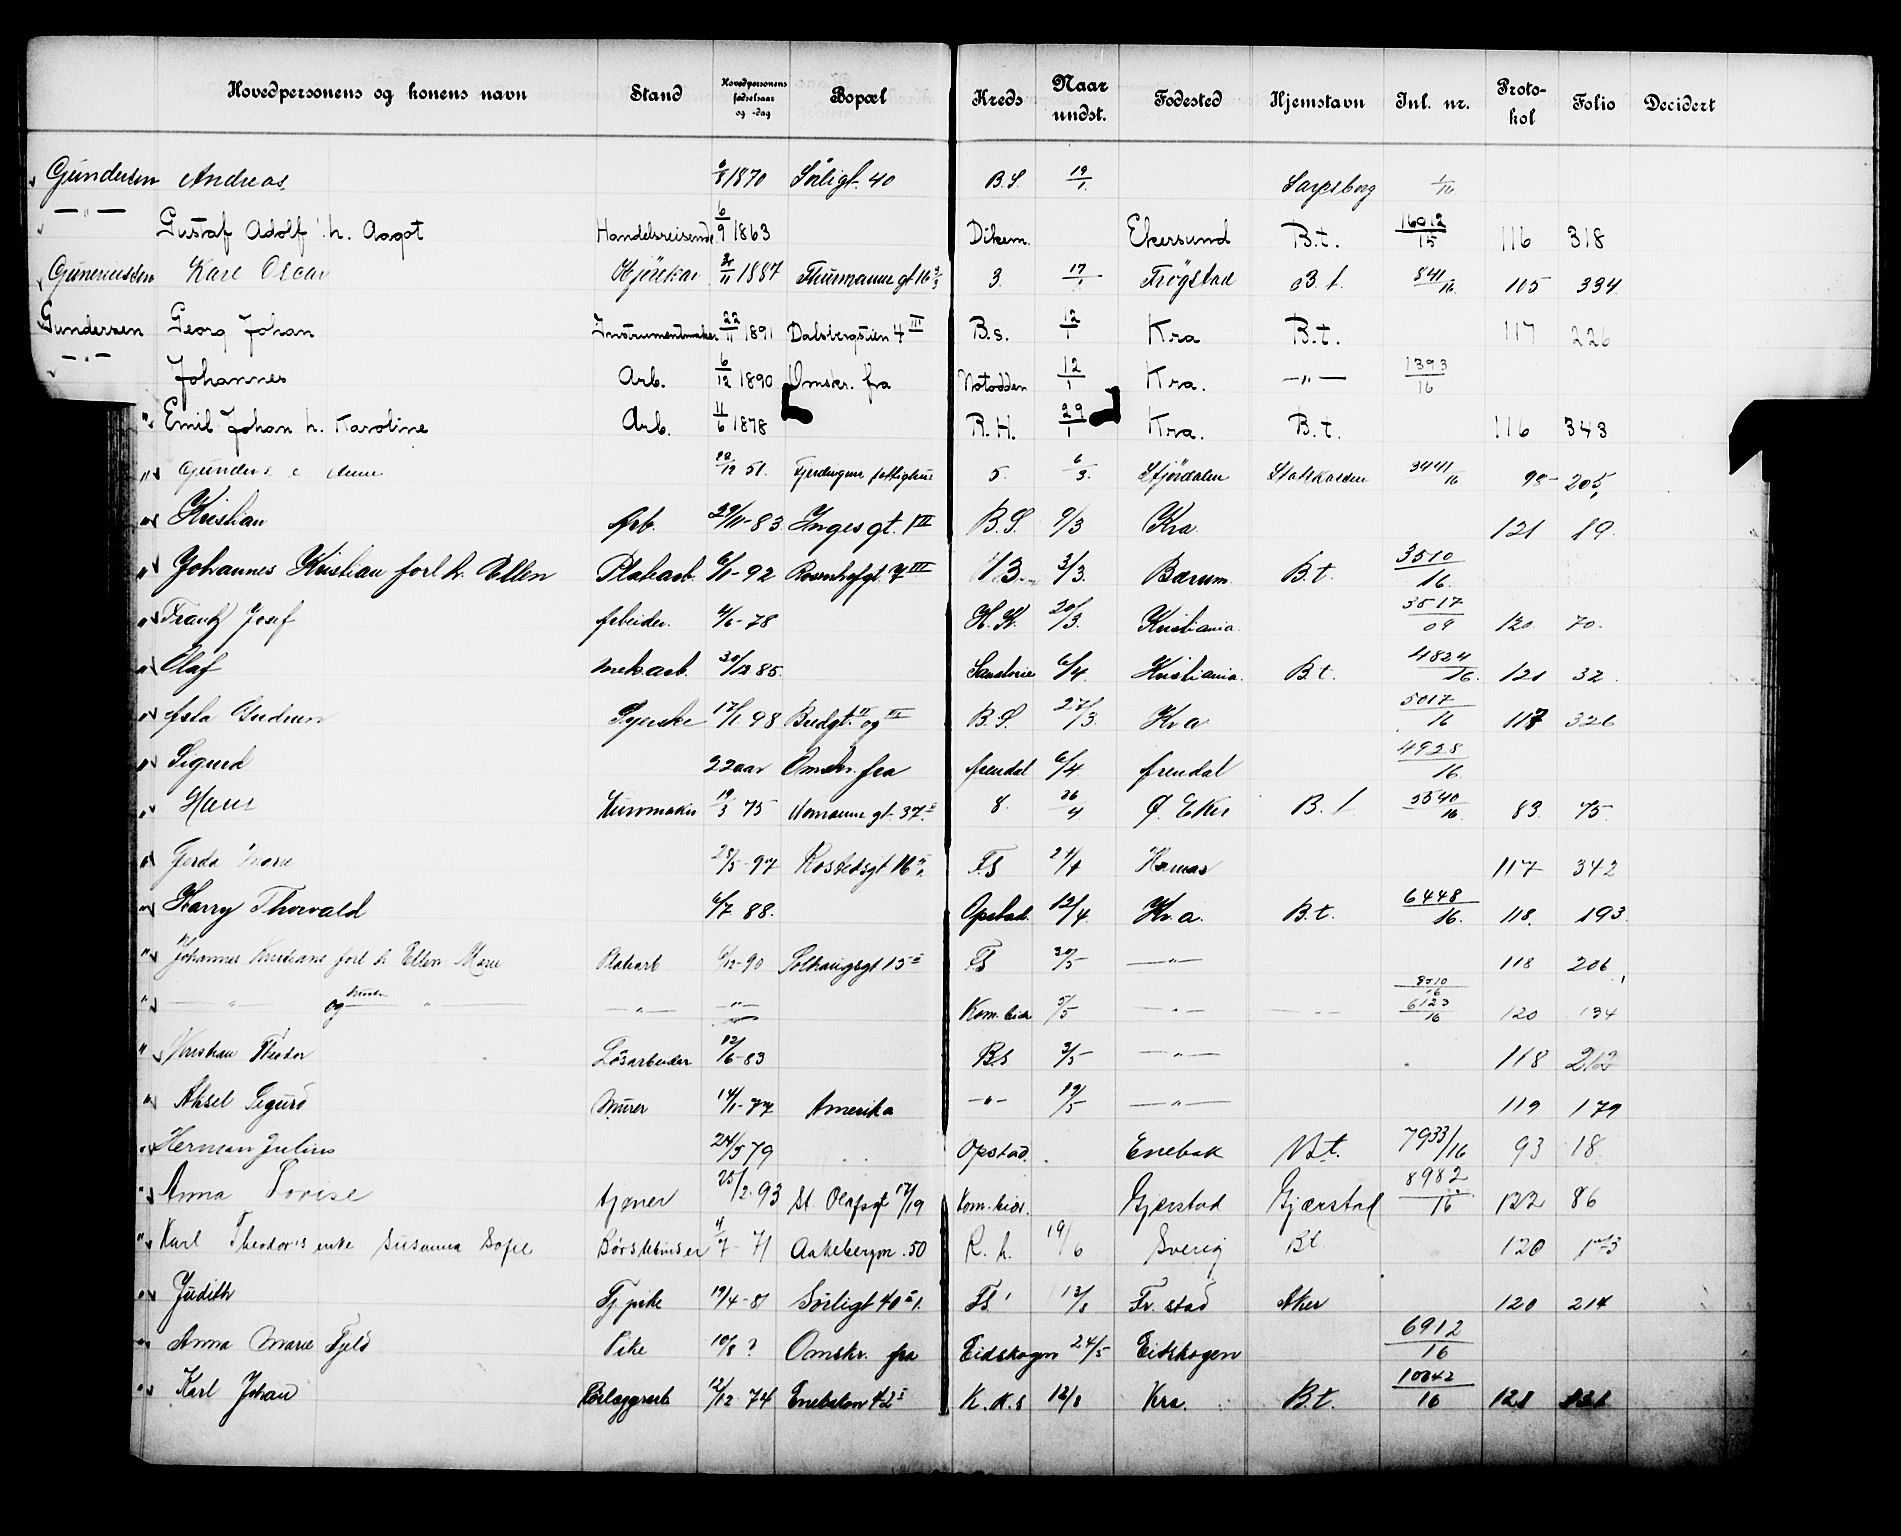 Hovedpersonens og konens navn Stand Hovedpersonens fødselsaar og -dag Bopæl Kreds Naar undst. Fødested Hjemstavn Inl. nr. Proto-kol Folio Decidert
Gundersen Andreas 1870 Sörligt. 40 B.S. 19/1 Sarpsborg
—"— Gustaf Adolf h. Aagot Handelsreisende 6/9 1863 Dikem. Ekersund B.t. 16012/15 116 318
Karl Oscar 1887 3. 17/1 Trøgstad B.t. 841/16 105 334
Gundersen Georg Johan Instrumentmaker 22/11 1891 Dalsbergstien 4 III B.s. 12/1 Kra B.t. 117 226
—"— Johannes Arb. 6/12 1890 Omskr. fra Notodden 12/1 Kra. —"— 1393/16
" Emil Johan h. Karoline Arb. 11/6 1878 R.H. 29/1 Kra. B.t. 116 343
" 51. 5. 6/3. Stjørdalen Statskassen 3441/16 98 205
" Kristian Arb. 29/11-83 Inges gt. 1 III B.S. 9/3 Kra. 121 19.
" Johannes Kristian forl. h. Ellen Platearb. 6/11-92 Rosenhofgt. 7 III 3/3. Bærum. B.t. 3510/16.
" Frantz Josef Arbeider. 4/6-78 H.K. 20/3. Kristiania. 3517/09 120. 70.
" Olaf mek.arb. 30/12 85. Sanatorie 6/4. Kristiania. B.t. 4824/16. 121 32.
" Asta Gudrun Syerske 17/1 98 Bredgt. og B.S. 27/3. Kra 5017/16 117 326
" Sigurd 22 aar Omskr. fra Arendal 6/4 Arendal 4928/16.
" Hans Kurvmaker 19/3 75 8. 26/4 Ø. Eker B.t. 5540/16. 83. 75.
" Gerda Marie 28/5-97 F.S 117 342
" Harry Thorvald 4/7 88. Opstad. 12/4. Kr.a. B.t. 6448/16. 118. 193.
" Johannes Kristians forl. h. Ellen Marie Platearb 6/12-90 Solhaugsgt 15 F.S 30/5 —"— 118 206
" — " — og " — —"— —"— Kom. eid 5/5 —"— —"— 3510/16 6123/16 120 134
" Kristian Theodor Løsarbeider 12/6-83 B.S 3/5 —"— 118 212
" Aksel Sigurd Murer 14/1-77 Amerika —"— 19/5 —"— 119 179
" Herman Julius 24/5 79 Opstad. Enebak B.t. 7933/16 93 18.
" Anna Lovise tjener 25/2.93 St. Olafsgt 17/19 Kom. eid. Gjerstad Gjærstad 8982/16 122 86
" Karl Theodors enke Susanna Sofie Børstebinder 4/7-71 Aakebergvn. 50 R. h. 19/6 Sverig B.t 120 173
" Judith Tj.pike 19/4-81 Sørligt 40 F.S 12/8 Fr. stad Aker 120 214
" Anna Marie Fjeld Pike 10/8 ? Omskr. fra Eidskogen 24/5 Eidskogen 6912/16
" Karl Johan 12/12 74 Enebakvn 42 K.K.S 12/8 Kra. B.t. 10042/16 121